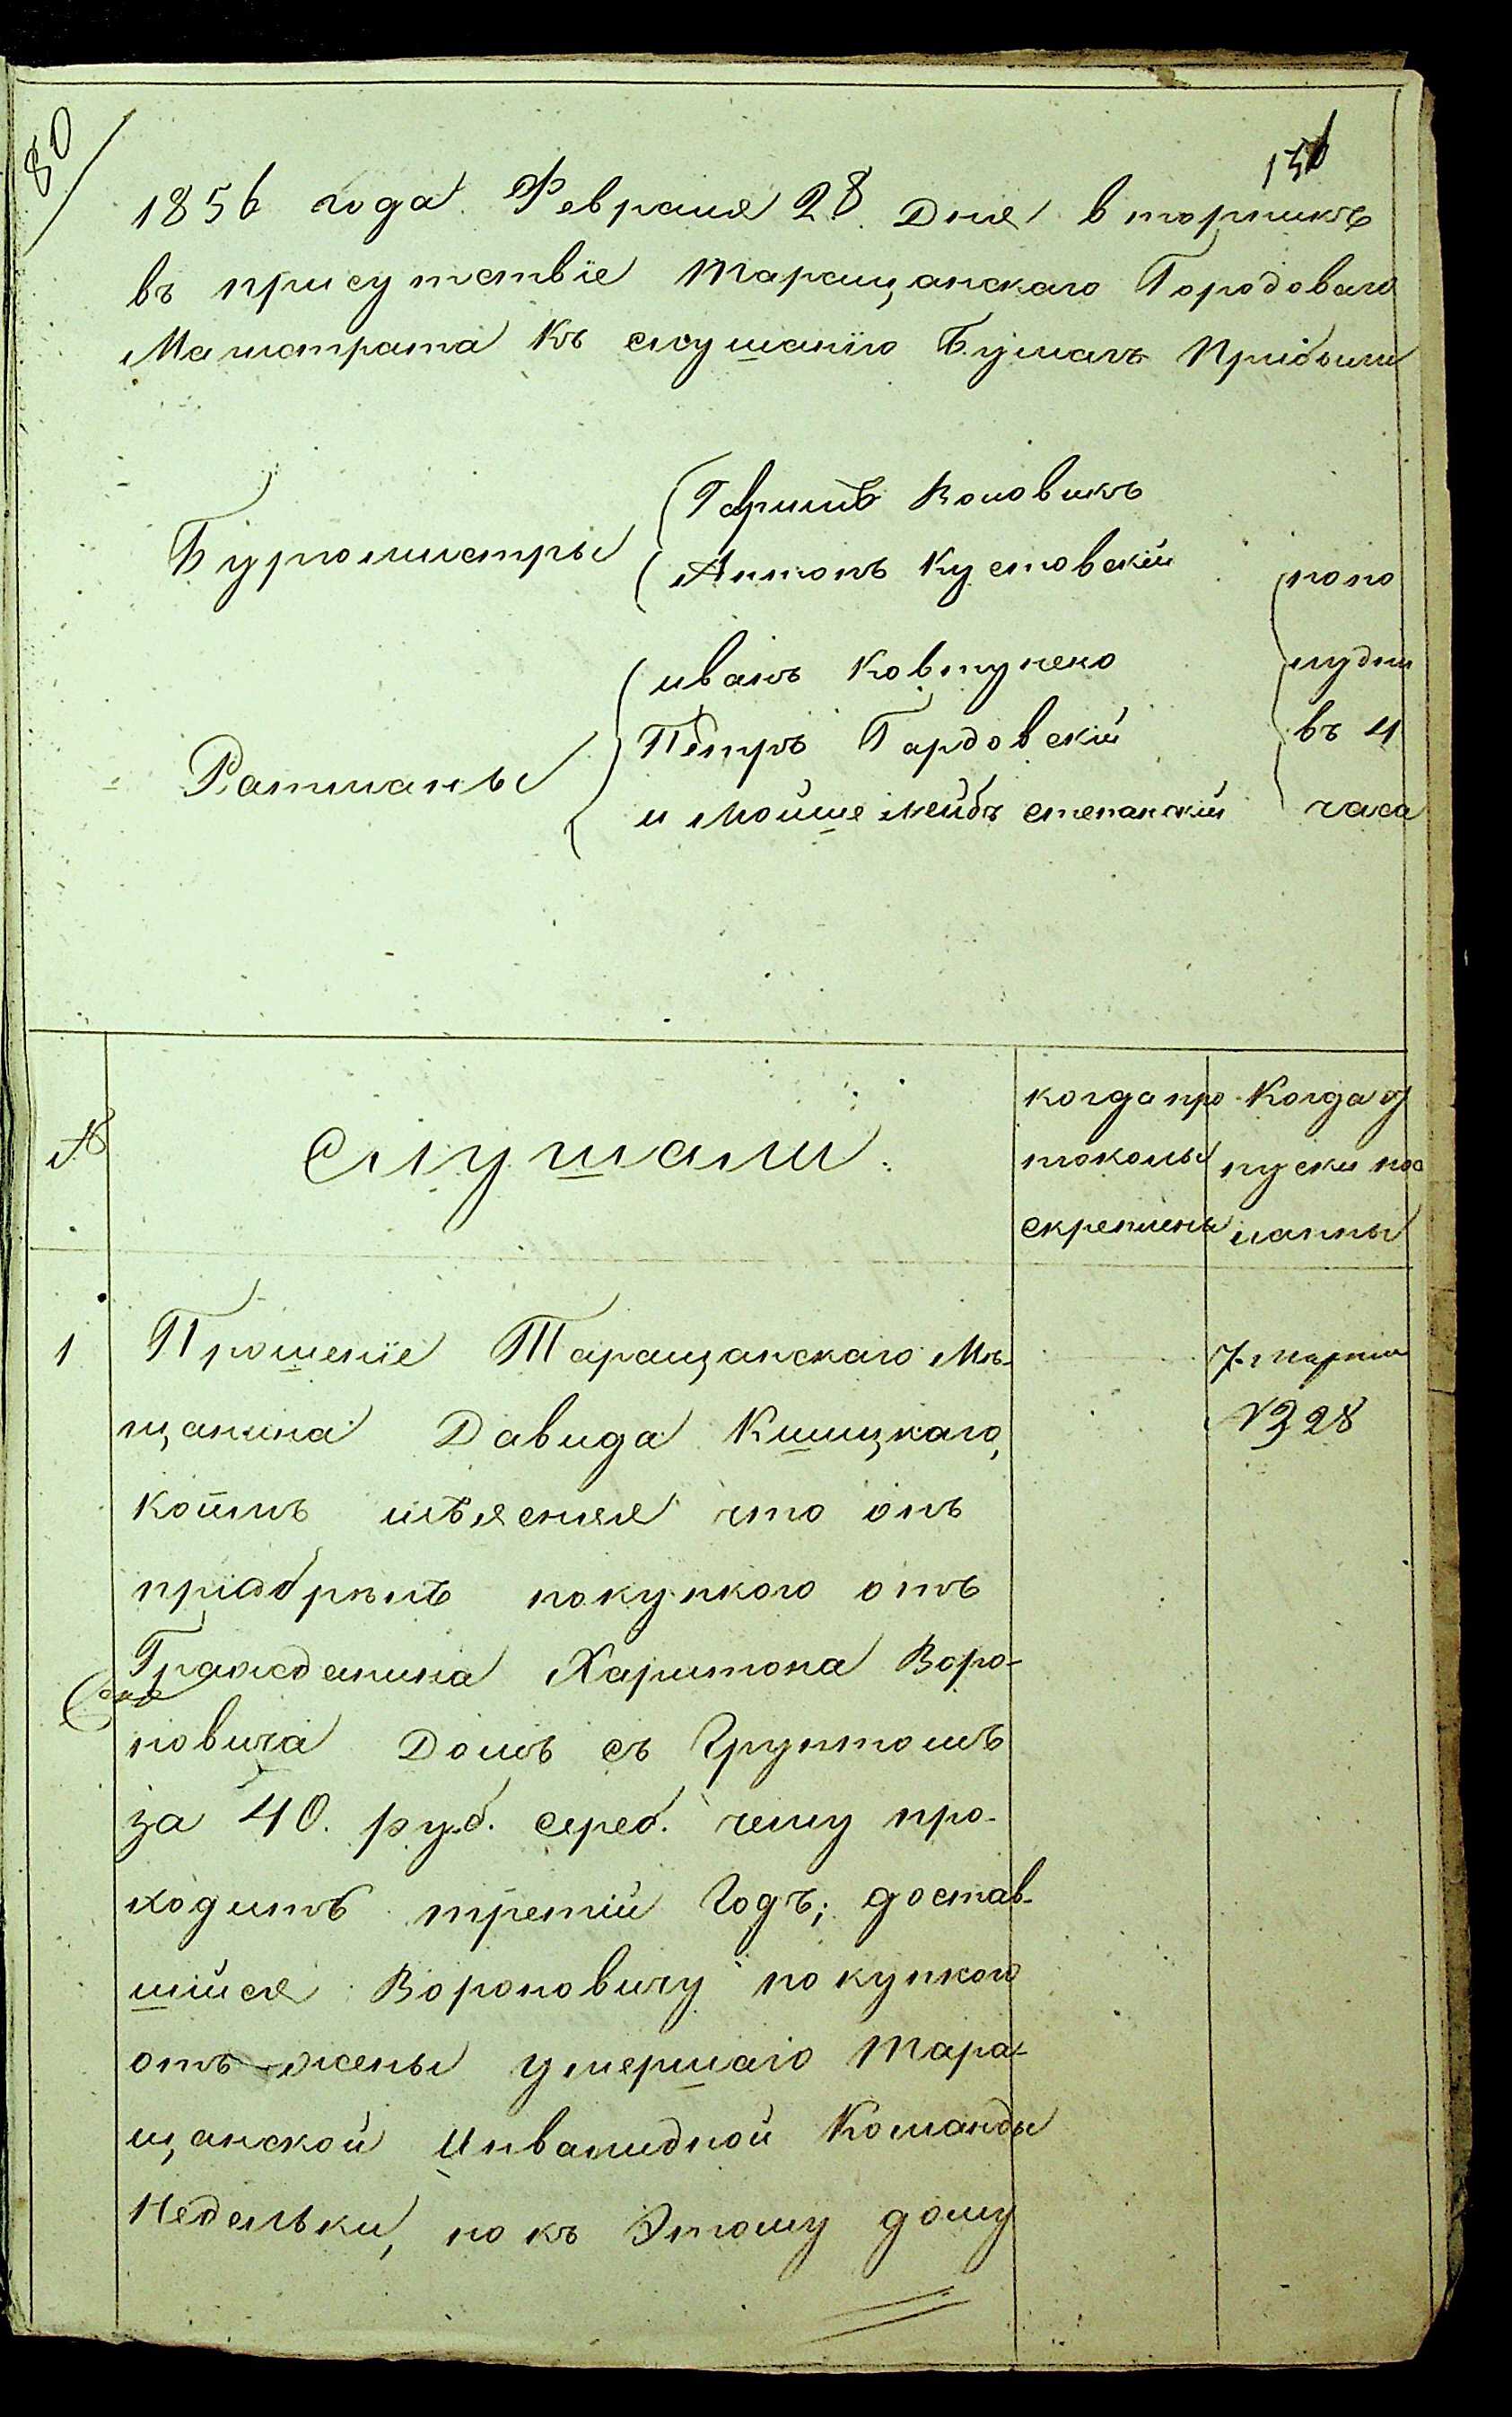 80
156
1856 года Февраля 28 Дня вторникъ
въ присутствiе Таращанскаго Городоваго
Магистрата Къ слушанiю Бумагъ Прибыли
Бургомистры
Гаврилъ Воловикъ
Антонъ Кустовскiй
Ратманы
иванъ Ковтуненко
Петръ Гардовскiй
и Мойше Лейбъ Степанскiй
попо
лудни
въ 4
часа
№
Слушали
когда про
токолы
скреплены
Когда от
пуски пос
ланны
1
Прошенiе Таращанскаго Мѣ-
щанина Давида Кишицкаго,
коимъ изъясняя что онъ
прiобрѣлъ покупкою отъ
Гражданина Харитона Воро-
новича Домъ съ Грунтомъ
за 40. руб. сереб. чему про-
ходитъ третiй Годъ; достав-
шийся Вороновичу покупкою
отъ жены умершаго Тара-
щанской Инвалидной Команды
Недельки, но къ Этому дому
7. марта
№ 328